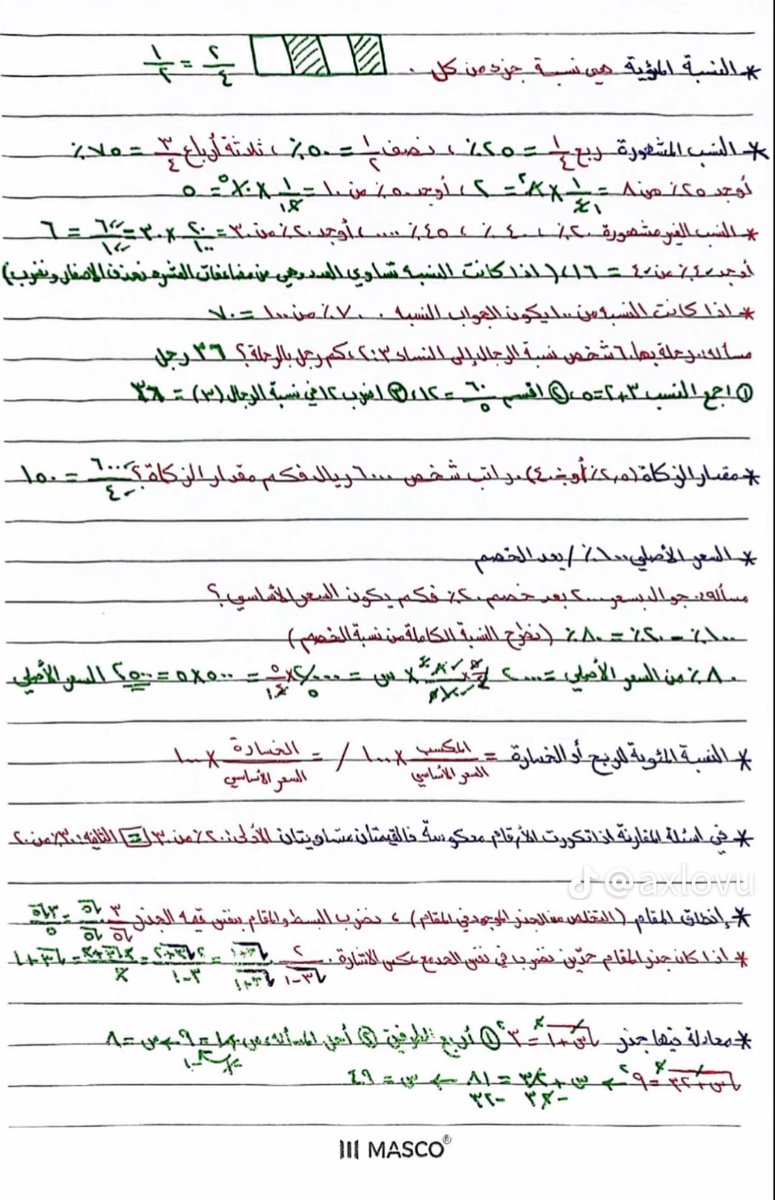 * النسبة المئوية هي نسبة جزء من كل . ٢/٤ = ١/٢
* النسب المشهورة ربع ١/٤ = ٢٥٪ ، نصف ١/٢ = ٥٠٪ ، ثلاثة أرباع ٣/٤ = ٧٥٪
أوجد ٢٥٪ من ٨ = ١/٤ × ٨ = ٢ ، أوجد ٥٠٪ من ١٠ = ١/٢ × ١٠ = ٥
* النسب الغير مشهورة ٢٠٪ ، ٤٠٪ ، ٤٥٪ .... ، أوجد ٢٠٪ من ٣٠ = ٢٠/١٠٠ × ٣٠ = ٦٠٠/١٠٠ = ٦
أوجد ٤٠٪ من ٤٠ = ١٦ ، ( اذا كانت النسبة تساوي العدد وهي من مضاعفات العشره نحذف الاصفار ونضرب)
* اذا كانت النسبه من ١٠٠ يكون الجواب النسبه . ٧٠٪ من ١٠٠ = ٧٠
مسأله: رحلة بها ٦٠ شخص نسبة الرجال إلى النساء ٣:٢ ، كم رجل بالرحلة؟ ٣٦ رجل
① اجمع النسب ٣+٢=٥ ، ② اقسم ٦٠/٥ = ١٢ ، ③ اضرب ١٢ في نسبة الرجال (٣) = ٣٦
* مقدار الزكاة (٢,٥٪ أو ÷ ٤٠) . راتب شخص ٦٠٠٠ ريال فكم مقدار الزكاة؟ ٦٠٠٠/٤٠ = ١٥٠
* السعر الأصلي ١٠٠٪ / بعد الخصم
مسأله: جوال بسعر ٢٠٠٠ بعد خصم ٢٠٪ فكم يكون السعر الأساسي؟
١٠٠٪ - ٢٠٪ = ٨٠٪ (نطرح النسبة الكاملة من نسبة الخصم)
٨٠٪ من السعر الأصلي = ٢٠٠٠ = س = ٥ × ٥٠٠ = ٢٥٠٠ السعر الأصلي
* النسبة المئوية للربح أو الخسارة = المكسب/السعر الأساسي × ١٠٠ / = الخسارة/السعر الأساسي × ١٠٠
* في اسئلة المقارنة اذا تكررت الأرقام معكوسة فالقيمتان متساويتان الأولى: ٢٠٪ من ٣٠ = الثانيه: ٣٠٪ من ٢٠
* إنطاق المقام (التخلص من الجذر الموجود في المقام) ، نضرب البسط والمقام بنفس قيمه الجذر ٣/√٥ √٥/√٥ = ٣√٥/٥
* اذا كان جذر المقام حدّين نضربا في نفس الحد مع عكس الاشارة . ٢/(√٣-١) (√٣+١)/(√٣+١) = (٢√٣+٢)/(٣-١) = (٢√٣+٢)/٢ = √٣+١
* معادلة فيها جذر √(س+١) = ٣ ① أربع الطرفين ② أحل المسأله س+١ = ٩ ← س = ٨
-١ -١
√(س+٣٢) = ٩ ← س + ٣٢ = ٨١ ← س = ٤٩
-٣٢ -٣٢
@axlovu
MASCO®